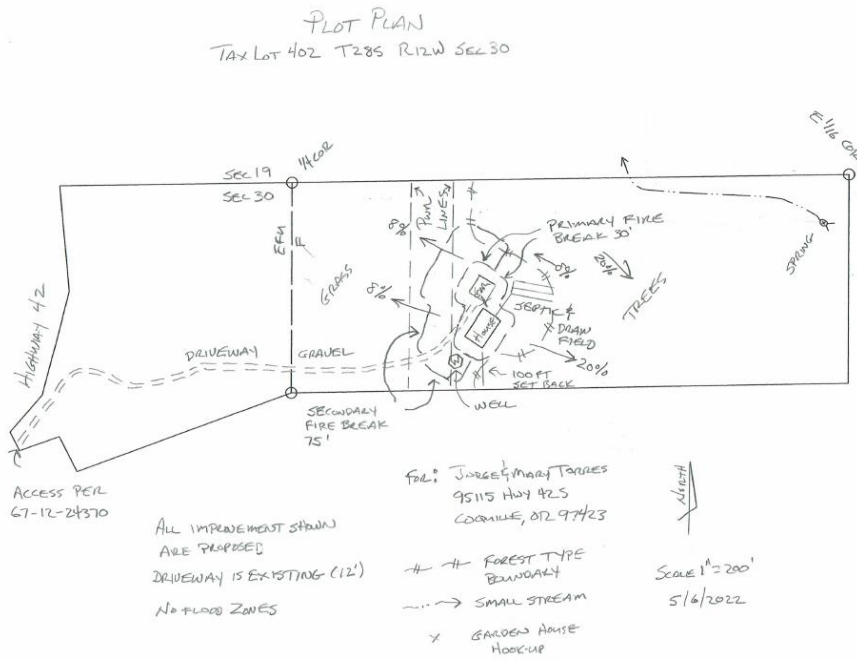 PLOT PLAN
TAX LOT 402 T28S R12W SEC 30
SEC 19
SEC 30
1/4 COR
E 1/16 COR
HIGHWAY 42
EFU
F
GRASS
8%
8%
PWR
LINES
PRIMARY FIRE
BREAK 30'
8%
20%
TREES
SPRING
HOUSE
SEPTIC &
DRAW
FIELD
20%
100 FT
SET BACK
WELL
DRIVEWAY GRAVEL
SECONDARY
FIRE BREAK
75'
ACCESS PER
67-12-24370
ALL IMPROVEMENT SHOWN
ARE PROPOSED
DRIVEWAY IS EXISTING (12')
NO FLOOD ZONES
FOR: JORGE & MARY TORRES
95115 HWY 42S
COQUILLE, OR 97423
FOREST TYPE
BOUNDARY
SMALL STREAM
X GARDEN HOUSE
HOOK-UP
NORTH
SCALE 1"=200'
5/6/2022